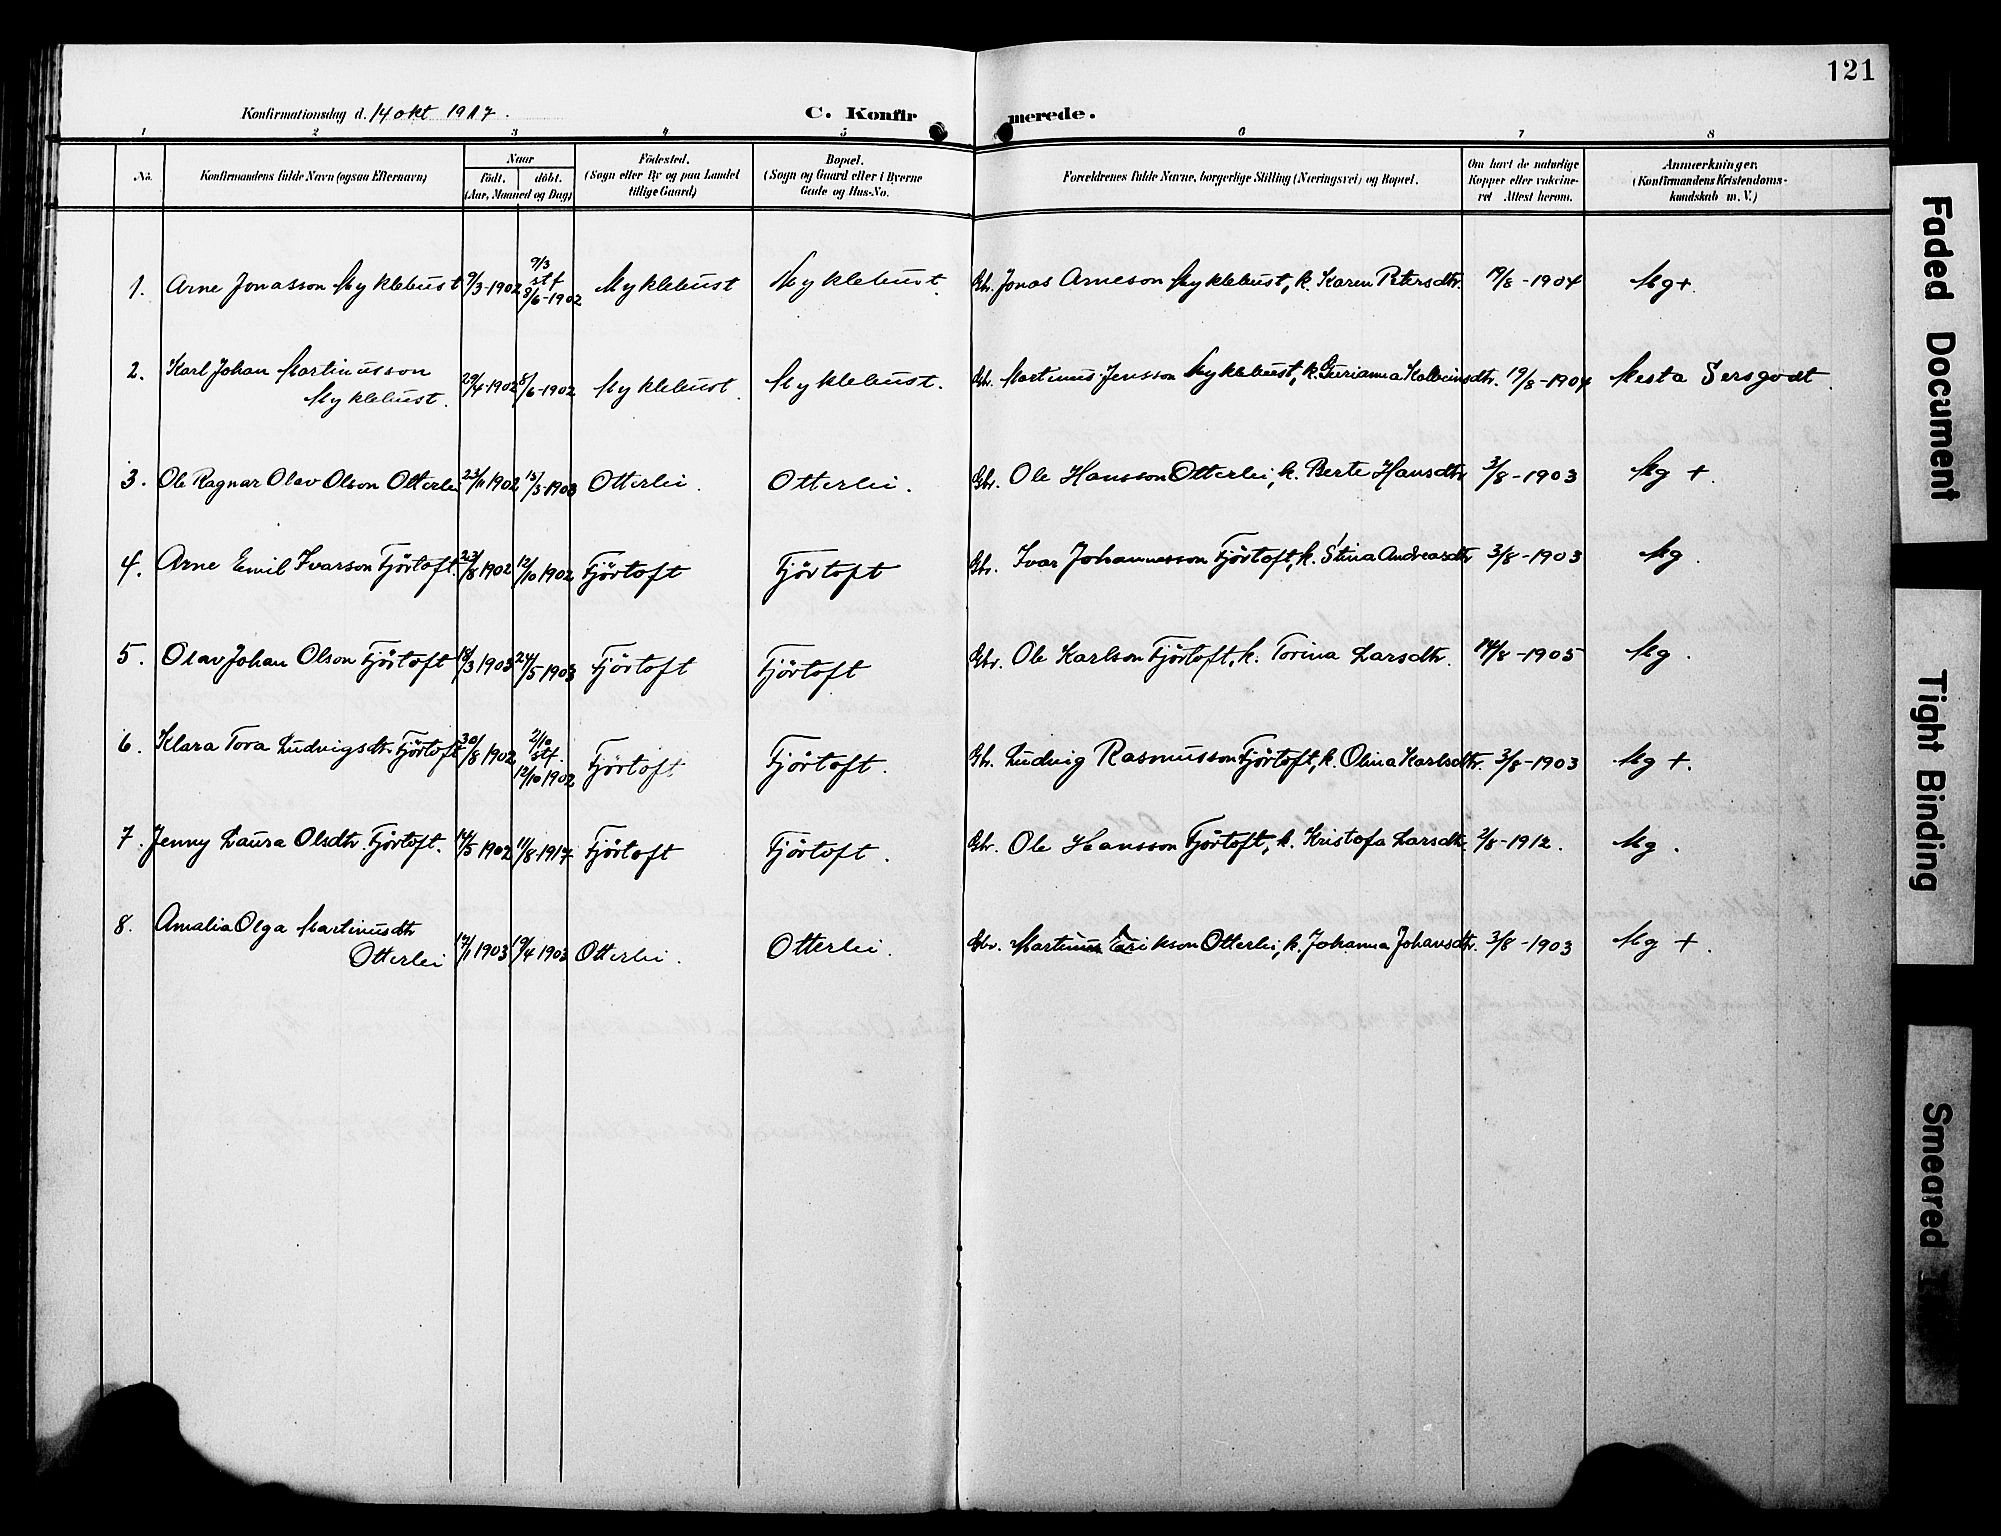 121
Konfirmationsdag d. 14 okt 1917.
C. Konfirmerede.
1 2 3 4 5 6 7 8
No.
Konfirmandens fulde Navn (ogsaa Efternavn)
Naar
født. døbt.
(Aar, Maaned og Dag)
Fødested.
(Sogn eller By og paa Landet
tillige Gaard)
Bopæl.
(Sogn og Gaard eller i Byerne
Gade og Hus-No.
Forældrenes fulde Navne, borgerlige Stilling (Næringsvei) og Bopæl.
Om havt de naturlige
Kopper eller vakcine-
ret Attest herom.
Anmærkninger.
(Konfirmandens Kristendoms-
kundskab m. V.)
1. Arne Jonasson Myklebust 9/3-1902 9/3 st f 8/6-1902 Myklebust Myklebust. Gbr. Jonas Arneson Myklebust, k. Karen Petersdtr. 19/8-1904 Mg+
2. Karl Johan Martinusson
Myklebust. 29/4-1902 8/6-1902 Myklebust. Myklebust. Gbr. Martinus Jensson Myklebust, k. Gurianna Kolbeinsdtr. 19/8-1904 Mesta Sersgodt.
3. Ole Ragnar Olav Olson Otterlei 23/11 1902 15/3-1903 Otterlei. Otterlei. Gbr. Ole Hansson Otterlei, k. Berte Hansdtr 3/8-1903 Mg +.
4. Arne Emil Ivarson Fjörtoft. 23/8 1902 12/10 1902 Fjörtoft Fjörtoft Gbr. Ivar Johannesson Fjörtoft, k. Stina Andreasdtr 3/8-1903 Mg.
5. Olav Johan Olson Fjörtoft 18/3 1903 24/5-1903 Fjörtoft Fjörtoft Gbr. Ole Karlson Fjörtoft, k. Torina Larsdtr. 14/8-1905 Mg.
6. Klara Tora Ludvigsdtr. Fjörtoft 30/8 1902 2/10 stf. 12/10 1902 Fjörtoft Fjörtoft. Gbr. Ludvig Rasmusson Fjörtoft, k. Olina Karlsdtr. 3/8-1903 Mg +.
7. Jenny Laura Olsdtr. Fjörtoft. 14/5 1902 11/8-1917. Fjörtoft Fjörtoft. Gbr. Ole Hansson Fjörtoft, k. Kristofa Larsdtr. 2/8-1912. Mg.
8. Amalia Olga Martinusdtr
Otterlei 1903 19/4 1903 Otterlei. Otterlei. Gbr. Martinus Erikson Otterlei, k. Johanna Johansdtr. 3/8-1903 Mg +.
Faded Document
Tight Binding
Smeared